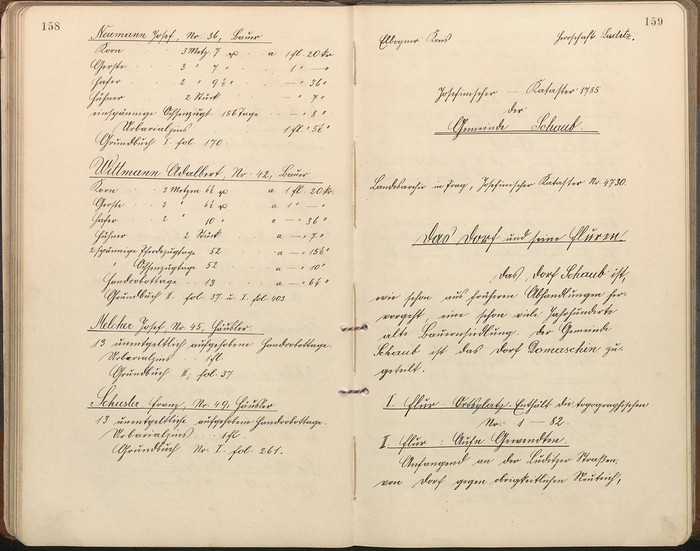 158
Neumann Josef, Nr. 36, Bauer
Korn 3 Metz 7 a 1 fl. 20 kr.
Gerste 3 " 7 " 1 " — "
Hafer 2 " 9½ " — " 36 "
Hühner 2 Stück — " 7 "
einspännige Ochsenzugt. 156 Tage — " 8 "
Urbarialzins 1 fl. " 56 "
Grundbuch I. fol. 170.
Wittmann Adalbert, Nr. 42, Bauer
Korn 3 Metzen 6½ a 1 fl. 20 kr.
Gerste 3 " 6½ a 1 " — "
Hafer 2 " 10 " a — " 36 "
Hühner 2 Stück a — " 7 "
2 spännige Pferdezugtage 52 a — " 15½ "
Ochsenzugtage 52 a — " 10 "
Handrobottage 13 a — " 6½ "
Grundbuch I. fol. 37 u. I. fol. 403
Melcher Josef, Nr. 45, Häusler
13 unentgeltlich aufgehobene Handrobottage.
Urbarialzins 1 fl.
Grundbuch fol. 37
Schuster Franz, Nr. 49, Häusler
13 unentgeltliche aufgehobene Handrobottage.
Urbarialzins 1 fl.
Grundbuch Nr. I. fol. 261.
159
Elbogner Kreis Herrschaft Luditz.
Josefinischer — Kataster 1785
der
Gemeinde Schaub.
Landesarchiv in Prag, Josefinischer Kataster Nr. 4730.
Das Dorf und seine Fluren.
Das Dorf Schaub ist,
wie schon aus früheren Abhandlungen her-
vorgeht eine schon viele Jahrhunderte
alte Bauernsiedlung. Der Gemeinde
Schaub ist das Dorf Domaschin zu-
geteilt.
I. Flur: Ortsplatz. Enthält die topographischen
Nr. 1 — 52.
II Flur: Gewendten.
Anfangend an der Luditzer Straßen,
von Dorf gegen obrigkeitlichen